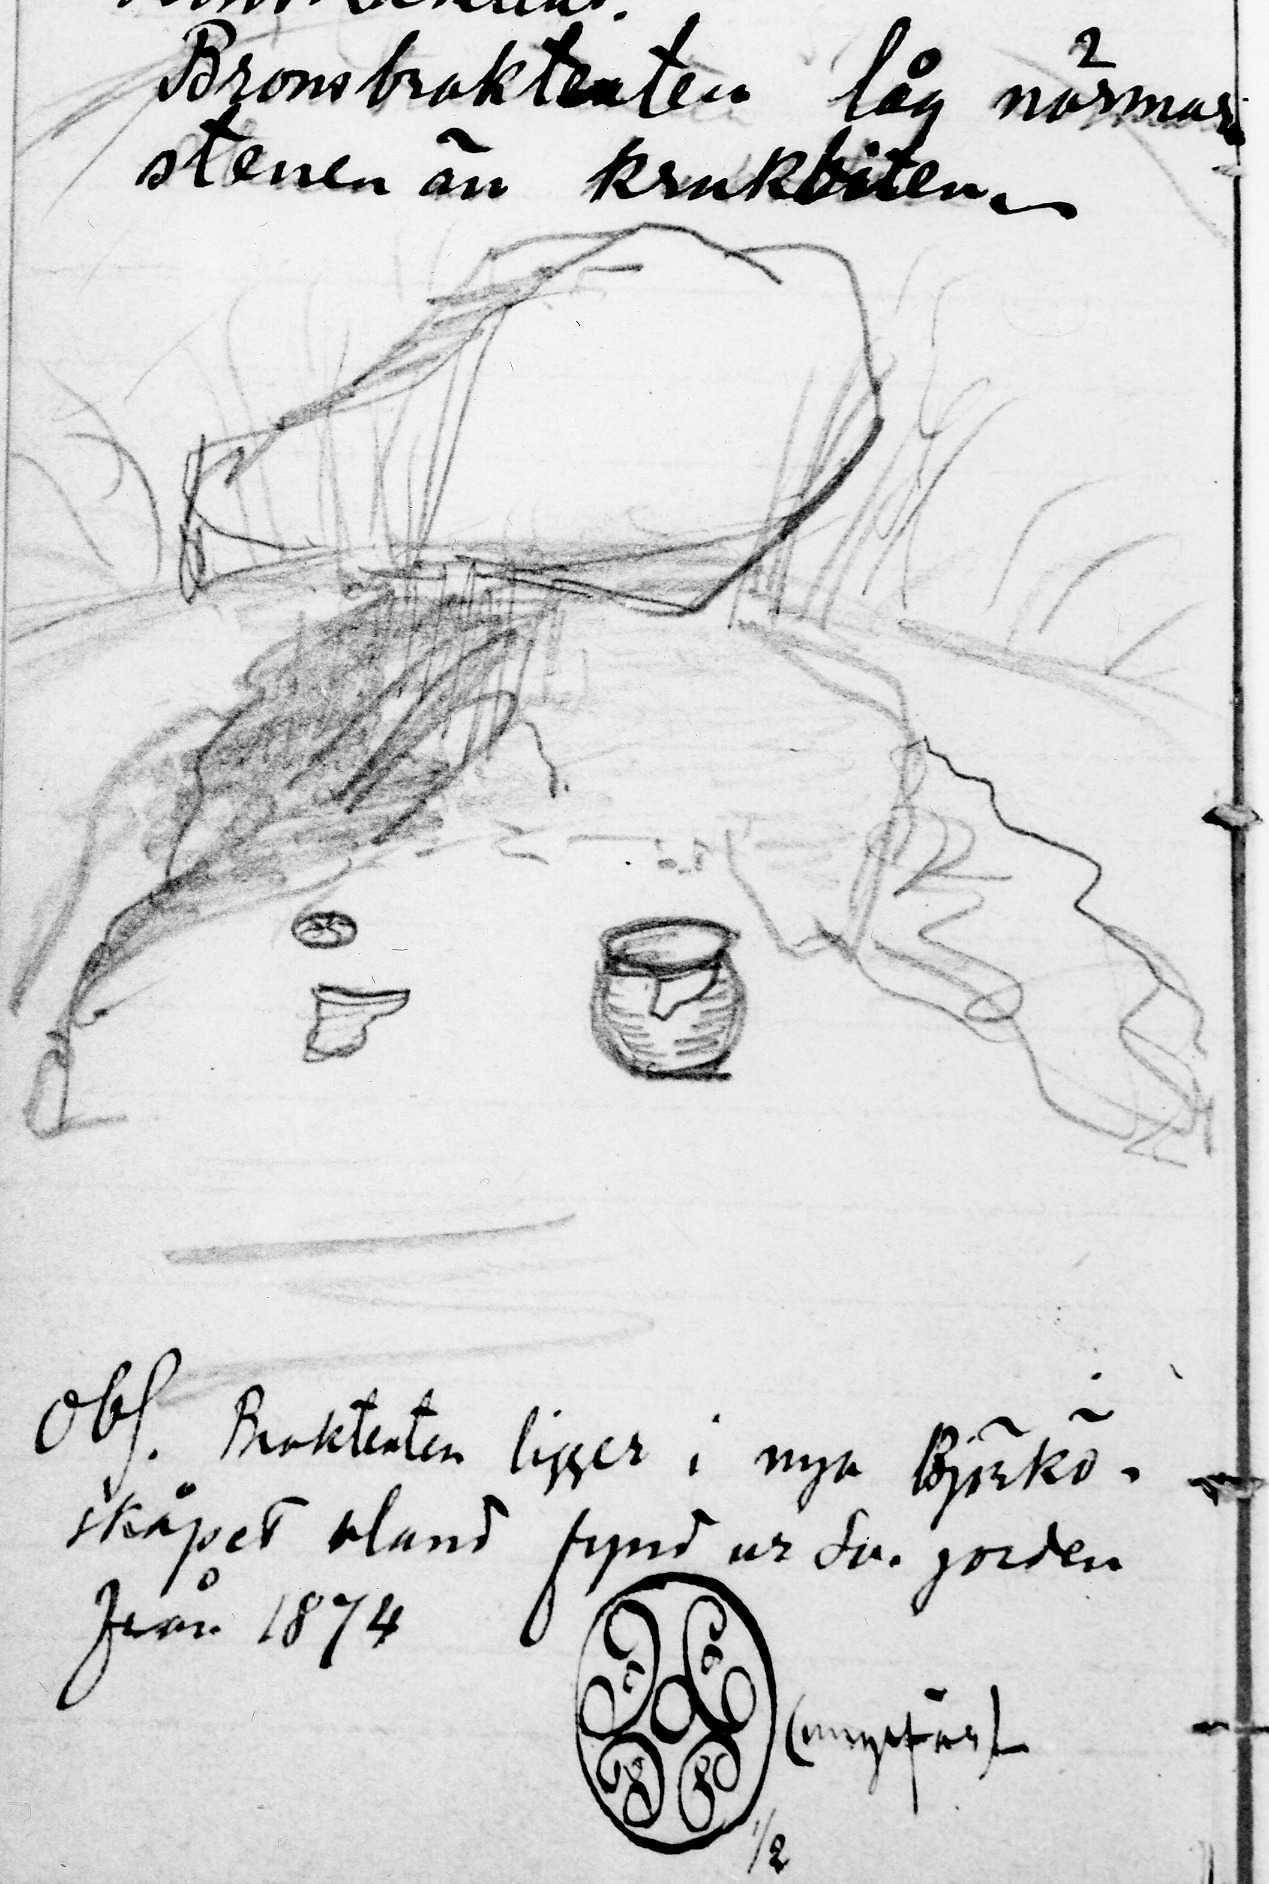 Bronsbrakteaten låg närmare
stenen än krukbiten
Obs. Brakteaten ligger i nya Björkö-
skåpet bland fynd ur Sv. jorden
från 1874
(ungefär)
1/2